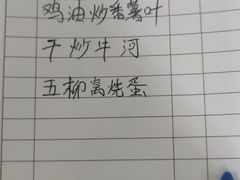 鸡油炒番薯叶
干炒牛河
五柳窝烧蛋